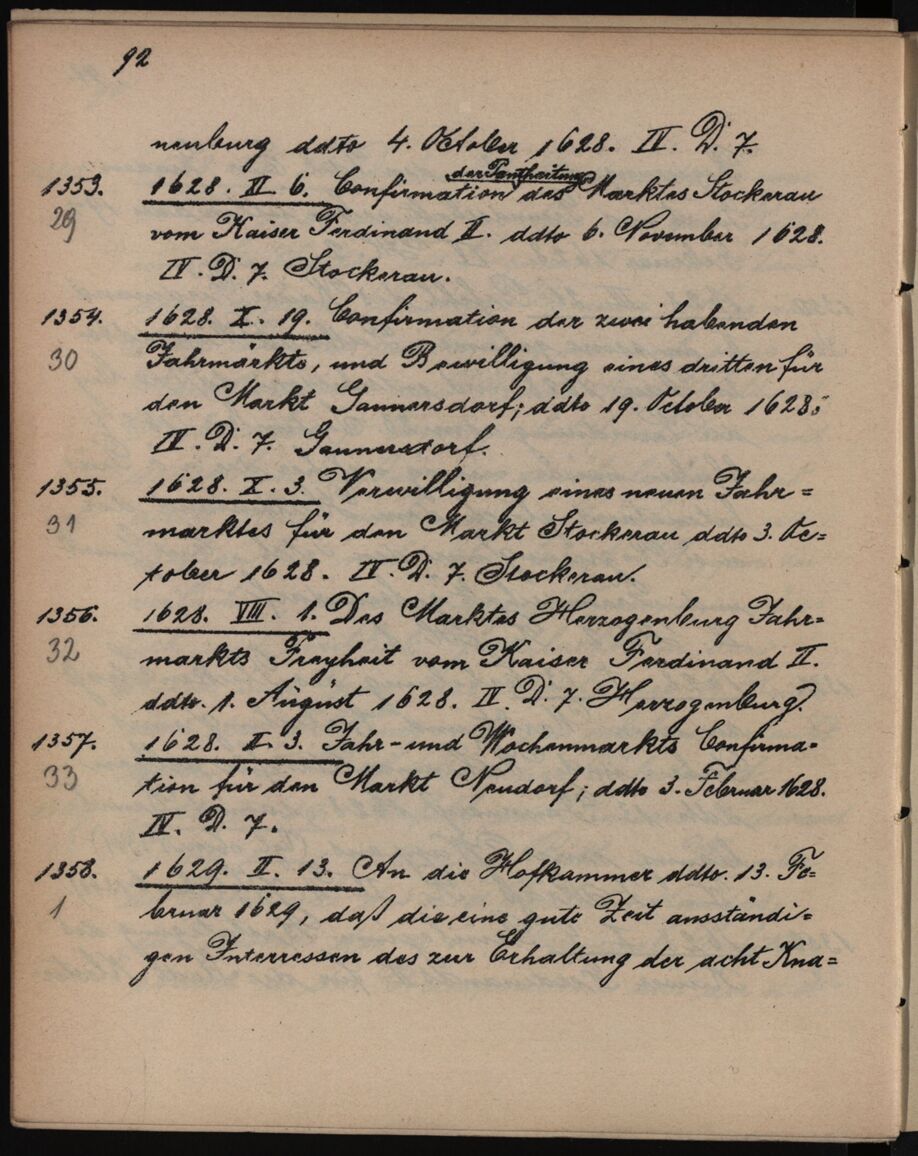 92
neuburg ddto 4. October 1628. IV. D. 7.
der Panthaitung
1353. 1628. XI. 6. Confirmation des Marktes Stockerau
29 vom Kaiser Ferdinand II. ddto 6. November 1628.
IV. D. 7. Stockerau.
1354. 1628. X. 19. Confirmation der zwei habenden
30 Jahrmärkte, und Bewilligung eines dritten für
den Markt Gaunersdorf; ddto 19. October 1628.
IV. D. 7. Gaunersdorf.
1355. 1628. X. 3. Verwilligung eines neuen Jahr=
31 marktes für den Markt Stockerau ddto 3. Oc=
tober 1628. IV. D. 7. Stockerau.
1356. 1628. VIII. 1. Des Marktes Herzogenburg Jahr=
32 markts Freyheit vom Kaiser Ferdinand II.
ddto. 1. August 1628. IV. D. 7. Herzogenburg.
1357. 1628. II. 3. Jahr- und Wochenmarkts Confirma=
33 tion für den Markt Neudorf; ddto 3. Februar 1628.
IV. D. 7.
1358. 1629. II. 13. An die Hofkammer ddto. 13. Fe=
1 bruar 1629, daß die eine gute Zeit ausständi=
gen Interressen des zur Erhaltung der acht Kna=